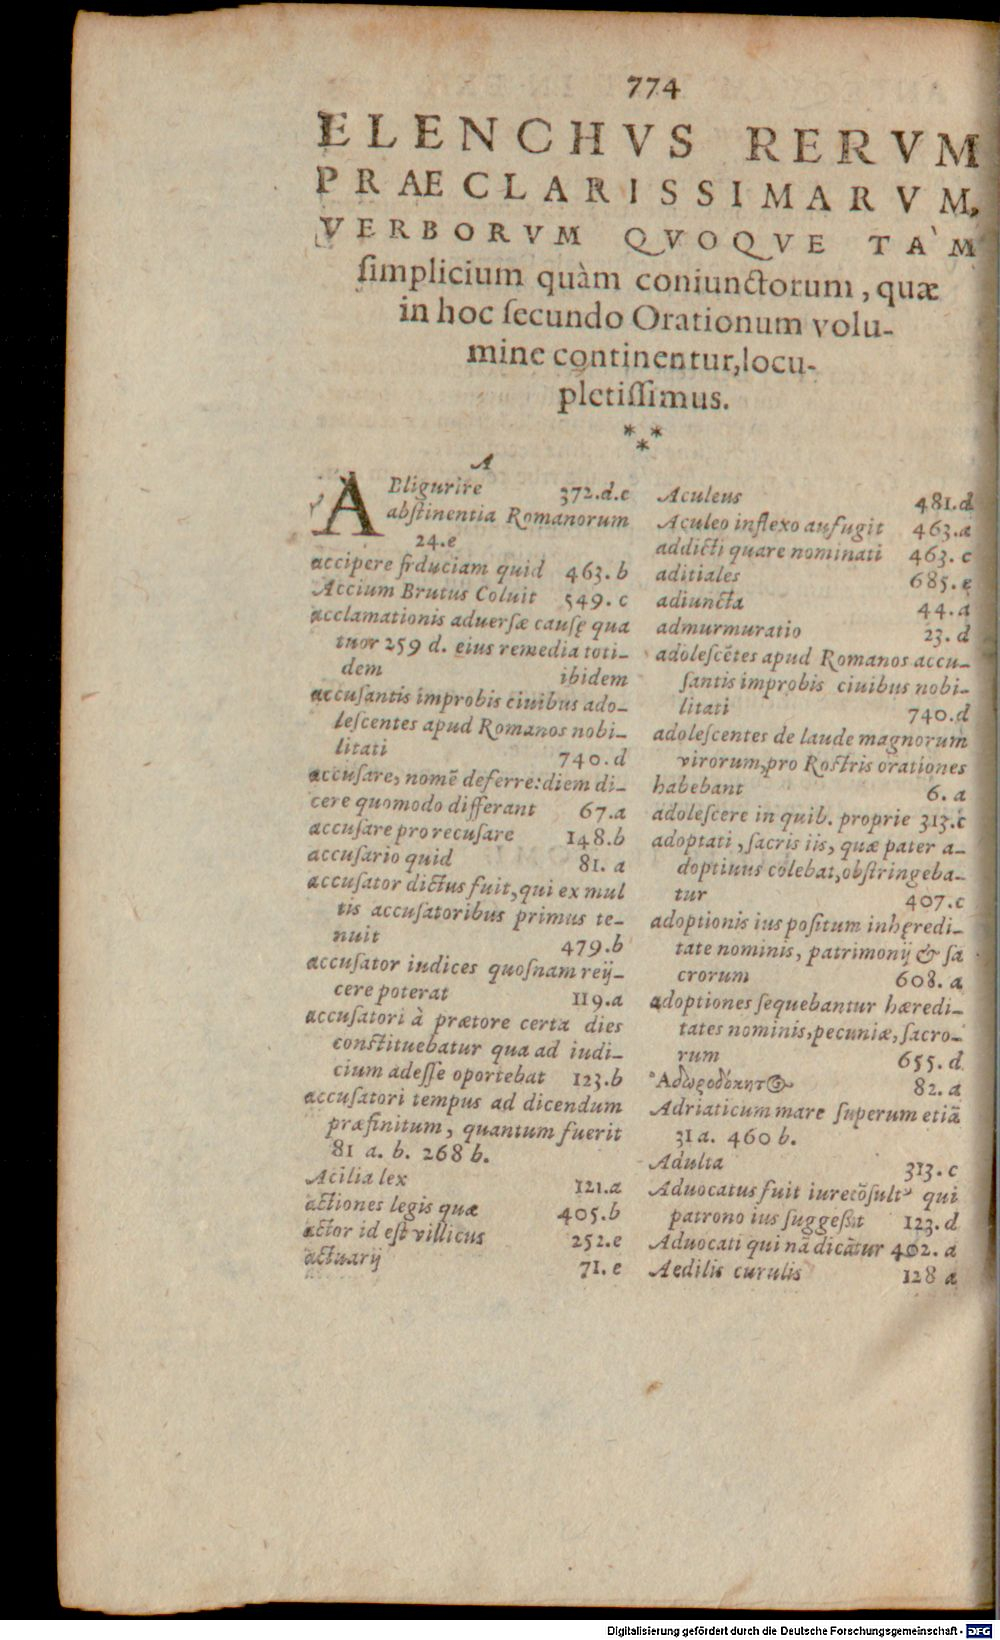 774
ELENCHVS RERVM
PRAECLARISSIMARVM,
VERBORVM QVOQVE TÀM
ſimplicium quàm coniunctorum, quæ
in hoc ſecundo Orationum volu-
mine continentur, locu-
pletiſſimus.
***
A
ABligurire 372.d.e
abſtinentia Romanorum
24.e
accipere frduciam quid 463.b
Accium Brutus Coluit 549.c
acclamationis aduerſæ cauſę qua
tuor 259 d. eius remedia toti-
dem ibidem
accuſantis improbis ciuibus ado-
leſcentes apud Romanos nobi-
litati 740.d
accuſare, nomē deferre: diem di-
cere quomodo differant 67.a
accuſare pro recuſare 148.b
accuſario quid 81. a
accuſator dictus fuit, qui ex mul
tis accuſatoribus primus te-
nuit 479.b
accuſator iudices quoſnam reij-
cere poterat 119.a
accuſatori à prætore certa dies
conſtituebatur qua ad iudi-
cium adeſſe oportebat 123.b
accuſatori tempus ad dicendum
præfinitum, quantum fuerit
81 a. b. 268 b.
Acilia lex 121.a
actiones legis quæ 405.b
actor id eſt villicus 252.e
actuarij 71.e
Aculeus 481.d
Aculeo inflexo aufugit 463.a
addicti quare nominati 463.c
aditiales 685.e
adiuncta 44.a
admurmuratio 23.d
adoleſcētes apud Romanos accu-
ſantis improbis ciuibus nobi-
litati 740.d
adoleſcentes de laude magnorum
virorum, pro Roſtris orationes
habebant 6. a
adoleſcere in quib. proprie 313.c
adoptati, ſacris iis, quæ pater a-
doptiuus colebat, obſtringeba-
tur 407.c
adoptionis ius poſitum in hęredi-
tate nominis, patrimonij & ſa
crorum 608. a
adoptiones ſequebantur hæredi-
tates nominis, pecuniæ, ſacro-
rum 655. d
82. a
Adriaticum mare ſuperum etiā
31 a. 460 b.
Adulta 313.c
Aduocatus fuit iurecōſultꝰ qui
patrono ius ſuggeßit 123.d
Aduocati qui nā dicātur 402. a
Aedilis curulis 128 a
Digitalisierung gefördert durch die Deutsche Forschungsgemeinschaft - DFG